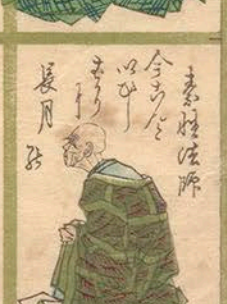 素性法師
今こんと
いひし
ばかり
に
長月
の